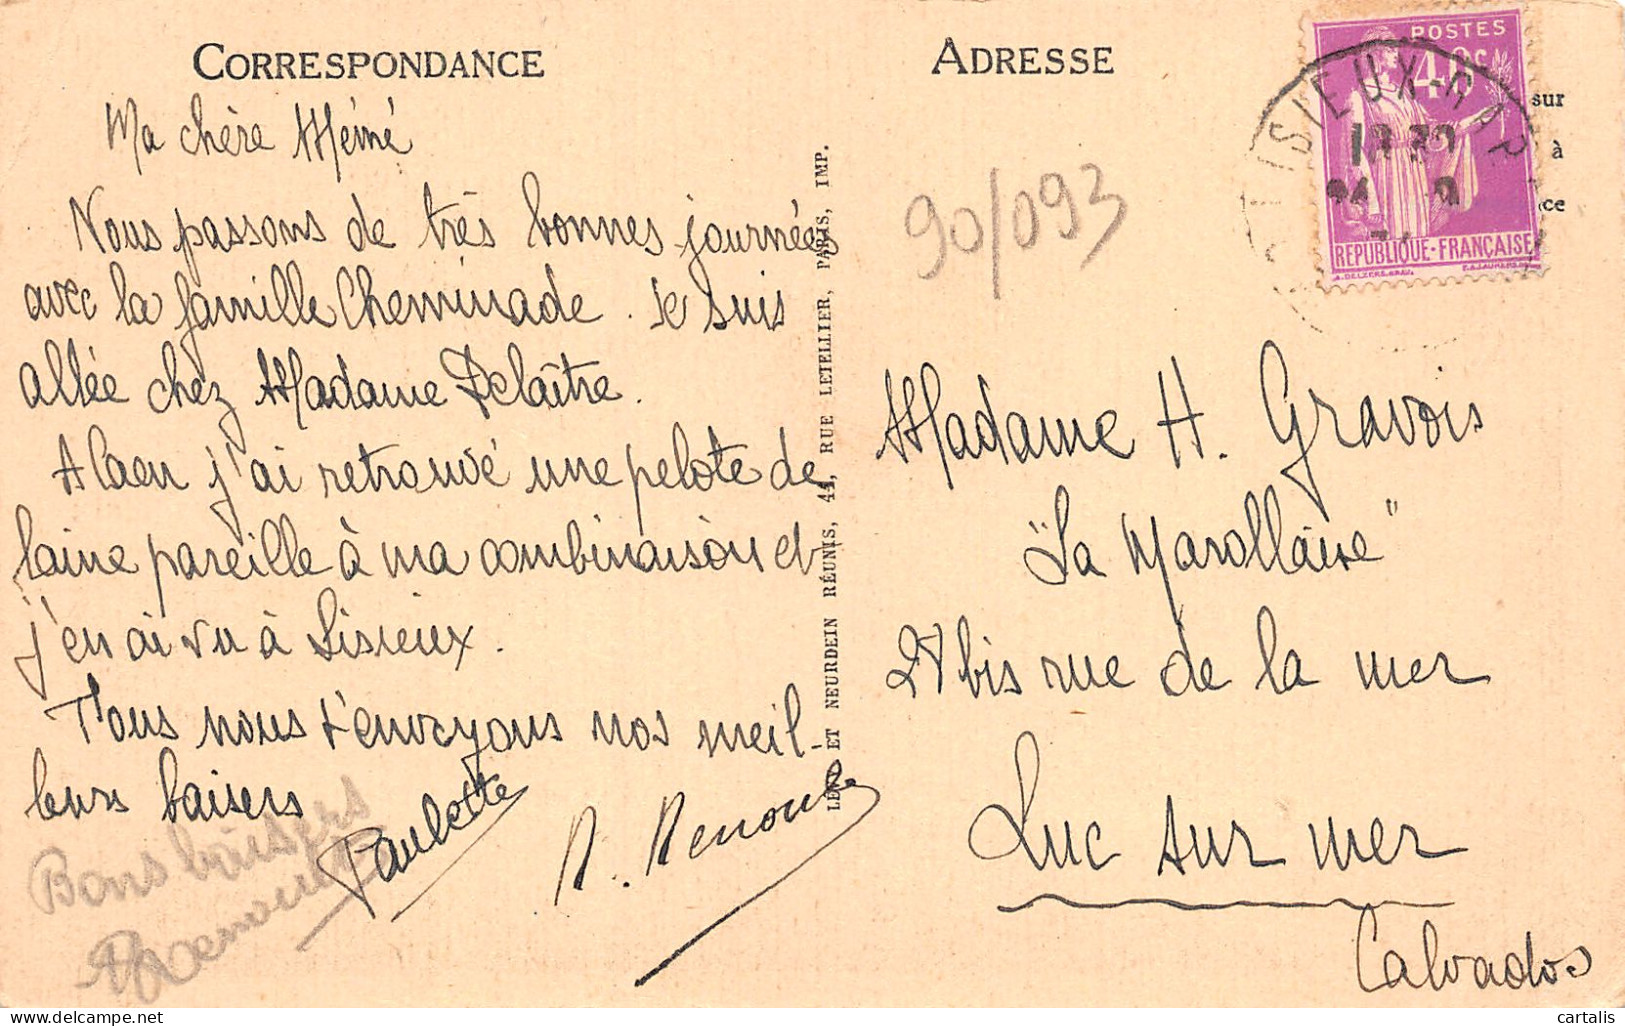 CORRESPONDANCE
Ma chère Mémé
Nous passons de très bonnes journées
avec la famille Cheminade. Je suis
allée chez Madame Delaître.
A Caen j'ai retrouvé une pelote de
laine pareille à ma combinaison et
j'en ai vu à Lisieux.
Tous nous t'envoyons nos meil-
leurs baisers
Paulette
R. Renouf
Bons baisers
LÉVY ET NEURDEIN RÉUNIS, 44, RUE LETELLIER, PARIS, IMP.
ADRESSE
90/093
POSTES
40c
REPUBLIQUE-FRANÇAISE
LISIEUX-GARE
sur
à
ce
Madame H. Gravois
"La Marollaise"
27 bis rue de la mer
Luc sur mer
Calvados
cartalis